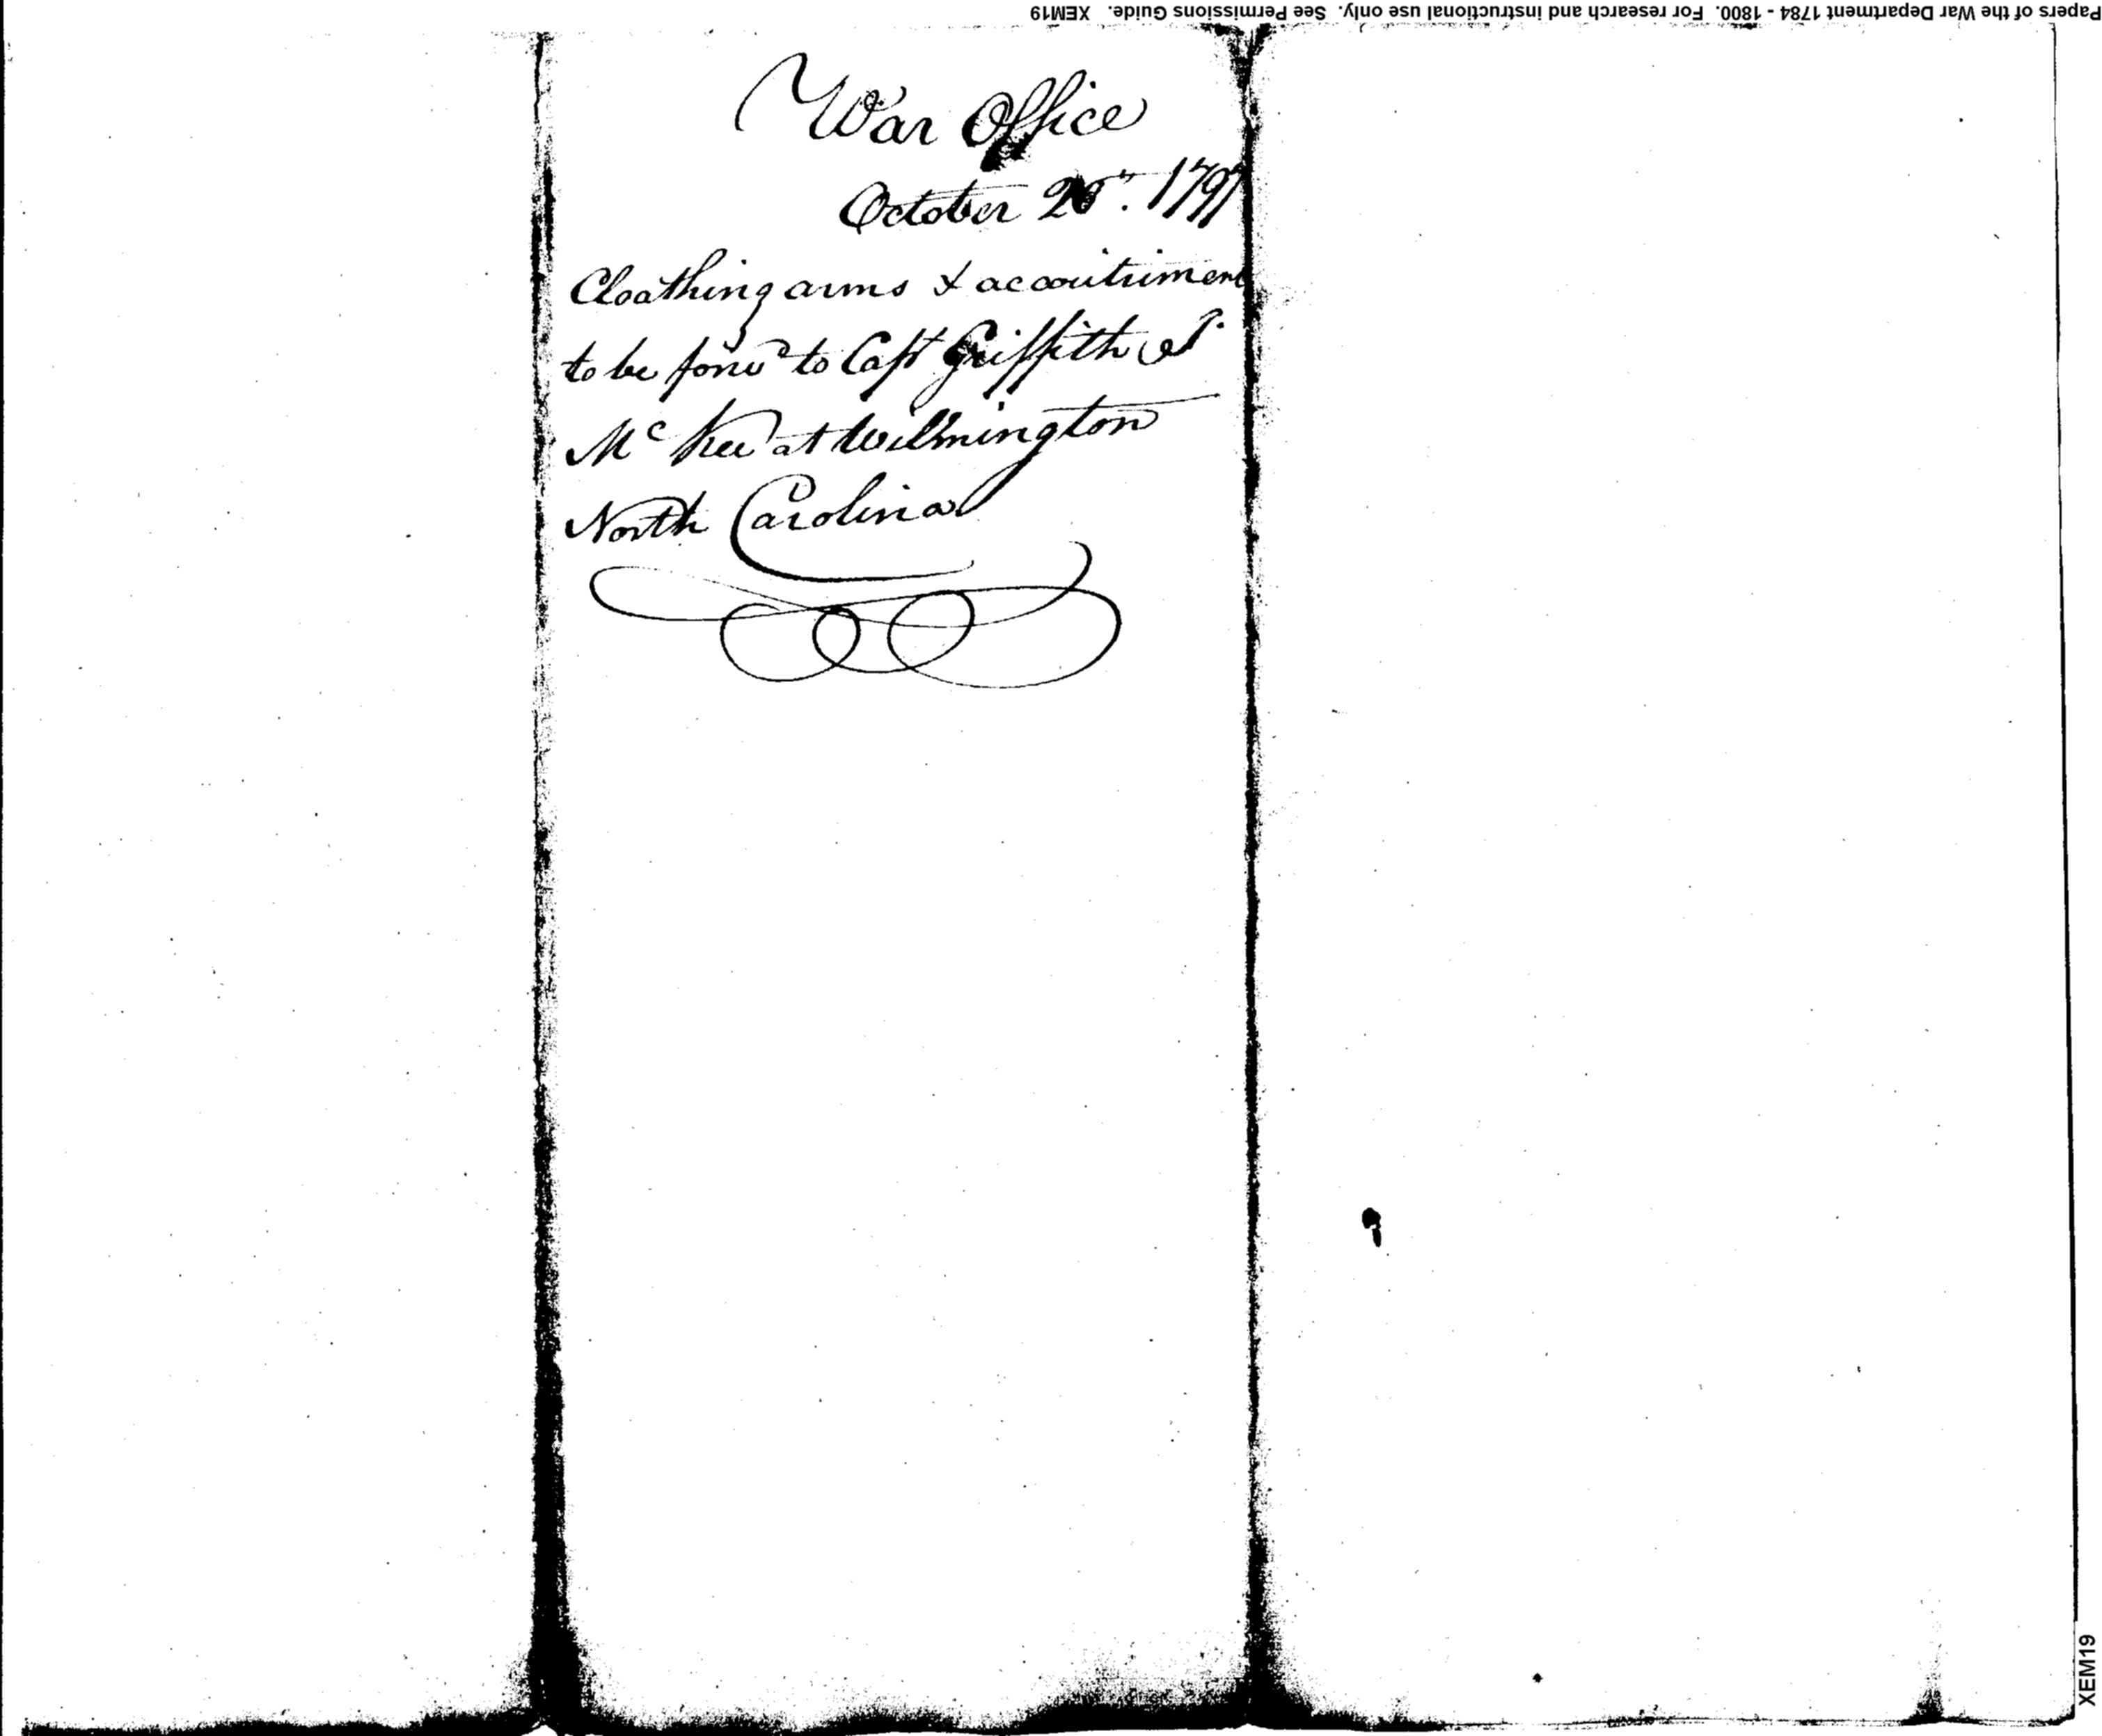 Papers of the War Department 1784 - 1800. For research and instructional use only. See Permissions Guide. XEM19
War Office
October 1797
Cloathing arms & accoutriment
to be forwd to Capt Griffith I
McRee at Wilmington
North Carolina
XEM19